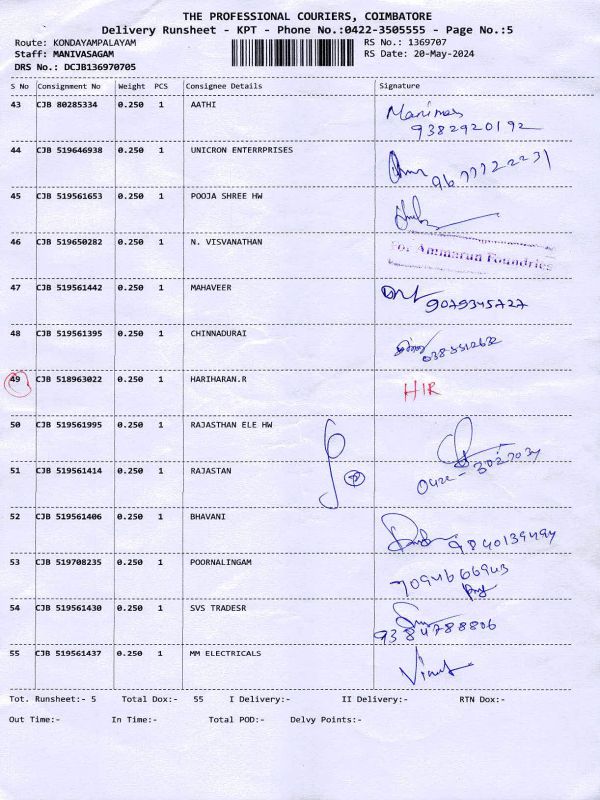 THE PROFESSIONAL COURIERS, COIMBATORE
Delivery Runsheet - KPT - Phone No.:0422-3505555 - Page No.:5
Route: KONDAYAMPALAYAM RS No.: 1369707
Staff: MANIVASAGAM RS Date: 20-May-2024
DRS No.: DCJB136970705
S No Consignment No Weight PCS Consignee Details Signature
43 CJB 80285334 0.250 1 AATHI
9382920192
44 CJB 519646938 0.250 1 UNICRON ENTERRPRISES
9677722231
45 CJB 519561653 0.250 1 POOJA SHREE HW
46 CJB 519650282 0.250 1 N. VISVANATHAN
For Ammarun Foundries
47 CJB 519561442 0.250 1 MAHAVEER
9079345727
48 CJB 519561395 0.250 1 CHINNADURAI
49 CJB 518963022 0.250 1 HARIHARAN.R HIR
50 CJB 519561995 0.250 1 RAJASTHAN ELE HW
51 CJB 519561414 0.250 1 RAJASTAN
52 CJB 519561406 0.250 1 BHAVANI
9840139494
53 CJB 519708235 0.250 1 POORNALINGAM
7094666943
54 CJB 519561430 0.250 1 SVS TRADESR
9384788806
55 CJB 519561437 0.250 1 MM ELECTRICALS
Tot. Runsheet:- 5 Total Dox:- 55 I Delivery:- II Delivery:- RTN Dox:-
Out Time:- In Time:- Total POD:- Delvy Points:-